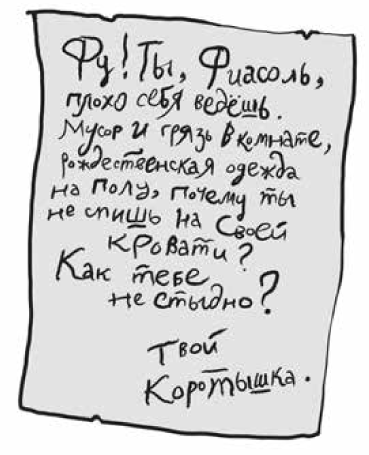 Фу! Ты, Фиасоль,
плохо себя ведёшь.
Мусор и грязь в комнате,
рождественская одежда
на полу, почему ты
не спишь на своей
кровати?
Как тебе
не стыдно?
Твой
Коротышка.